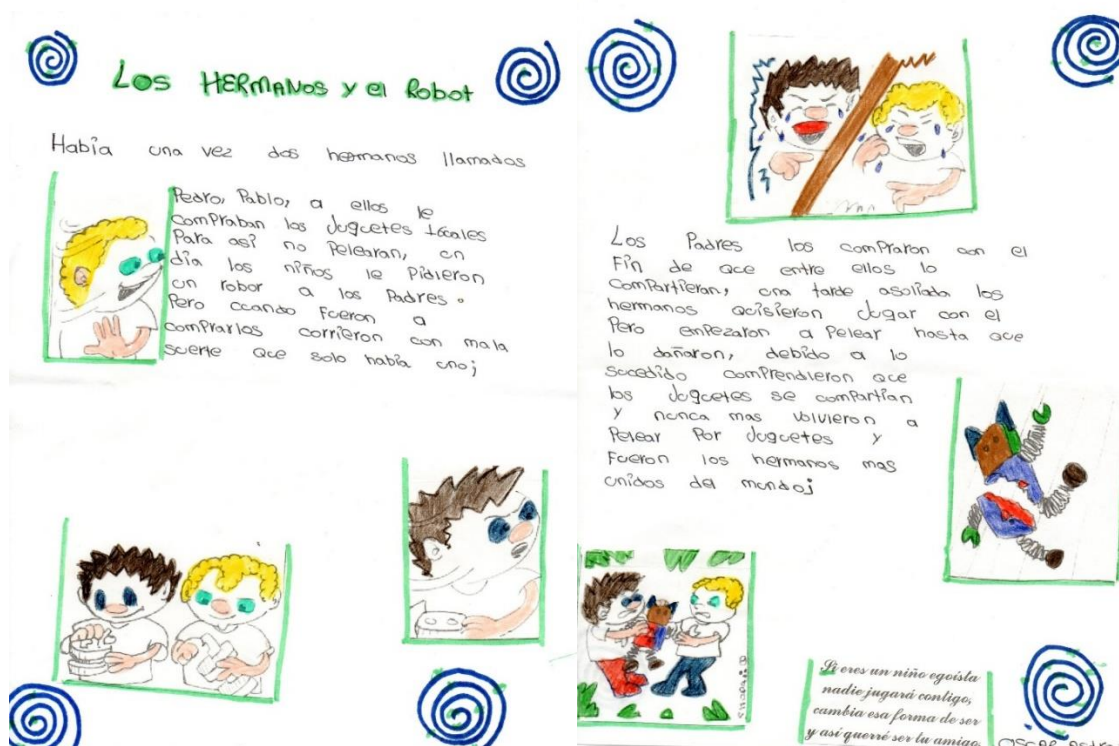 Los HERMANOS y el Robot
Había una vez dos hermanos llamados
Pedro, Pablo, a ellos le
compraban los Juguetes iguales
Para así no Pelearan, un
día los niños le Pidieron
un robor a los Padres.
Pero cuando Fueron a
comprarlos corrieron con mala
suerte que solo había uno;
Los Padres los compraron con el
Fin de que entre ellos lo
compartieran, una tarde asoliada los
hermanos quisieron Jugar con el
Pero empezaron a Pelear hasta que
lo dañaron, debido a lo
sucedido comprendieron que
los Juguetes se compartían
y nunca mas volvieron a
Pelear Por Juguetes y
Fueron los hermanos mas
unidos del mundo;
Si eres un niño egoísta
nadie jugará contigo,
cambia esa forma de ser
y así querré ser tu amigo.
Oscar